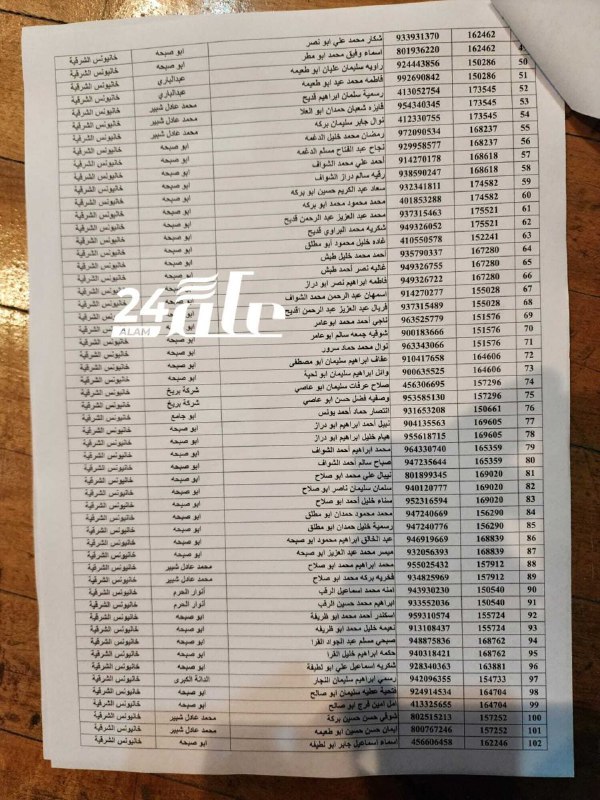 162462 933931370 شكار محمد علي ابو نصر ابو صبحه خانيونس الشرقية
162462 801936220 اسماء وفيق محمد ابو مطر ابو صبحه خانيونس الشرقية
50 150286 924443856 راويه سليمان عليان ابو طعيمه عبدالباري خانيونس الشرقية
51 150286 992690842 فاطمه محمد عبد ابو طعيمه عبدالباري خانيونس الشرقية
52 173545 413052754 رسمية سلمان ابراهيم قديح محمد عادل شبير خانيونس الشرقية
53 173545 954340345 فايزه شعبان حمدان ابو العلا محمد عادل شبير خانيونس الشرقية
54 173545 412330755 نوال جابر سليمان بركه محمد عادل شبير خانيونس الشرقية
55 168237 972090534 رمضان محمد خليل الدغمه ابو صبحه خانيونس الشرقية
56 168237 929958577 نجاح عبد الفتاح مسلم الدغمه ابو صبحه خانيونس الشرقية
57 168618 914270178 أحمد علي محمد الشواف ابو صبحه خانيونس الشرقية
58 168618 938590247 رقيه سالم دراز الشواف ابو صبحه خانيونس الشرقية
59 174582 932341811 سعاد عبد الكريم حسين ابو بركه ابو صبحه خانيونس الشرقية
60 174582 401853288 محمد محمود محمد ابو بركه ابو صبحه خانيونس الشرقية
61 175521 937315463 محمد عبد العزيز عبد الرحمن قديح ابو صبحه خانيونس الشرقية
62 175521 949326052 شكريه محمد البراوي قديح ابو صبحه خانيونس الشرقية
63 152241 410550578 غاده خليل محمود أبو مطلق ابو صبحه خانيونس الشرقية
64 167280 935790337 احمد محمد خليل طبش ابو صبحه خانيونس الشرقية
65 167280 949326755 غاليه نصر أحمد طبش ابو صبحه خانيونس الشرقية
66 167280 949326722 فاطمه ابراهيم نصر ابو دراز خانيونس الشرقية
67 155028 914270277 اسمهان عبد الرحمن محمد الشواف خانيونس الشرقية
68 155028 937315489 فريال عبد العزيز عبد الرحمن قديح خانيونس الشرقية
69 151576 963525779 ناجي أحمد محمد ابوعامر خانيونس الشرقية
70 151576 900183666 صوفيه جمعه سالم ابوعامر خانيونس الشرقية
71 151576 963343066 نوال محمد حماد سرور ابو صبحه خانيونس الشرقية
72 164606 910417658 عفاف ابراهيم سليمان ابو مصطفى ابو صبحه خانيونس الشرقية
73 164606 900635525 وائل ابراهيم سليمان ابو لحية ابو صبحه خانيونس الشرقية
74 157296 456306695 صلاح عرفات سليمان ابو عاصي شركة بريخ خانيونس الشرقية
75 157296 953585130 وصفيه فضل حسن ابو عاصي شركة بريخ خانيونس الشرقية
76 150661 931653208 انتصار حماد أحمد يونس ابو جامع خانيونس الشرقية
77 169605 904135563 نبيل أحمد ابراهيم ابو دراز ابو صبحه خانيونس الشرقية
78 169605 955618715 هيام خليل ابراهيم ابو دراز ابو صبحه خانيونس الشرقية
79 165359 964330740 محمد ابراهيم أحمد الشواف ابو صبحه خانيونس الشرقية
80 165359 947235644 صباح سالم أحمد الشواف ابو صبحه خانيونس الشرقية
81 169020 801899345 نيبال علي محمد ابو صلاح ابو صبحه خانيونس الشرقية
82 169020 940120777 سلمان سليمان ناصر ابو صلاح ابو صبحه خانيونس الشرقية
83 169020 952316594 سناء خليل أحمد ابو صلاح ابو صبحه خانيونس الشرقية
84 156290 947240669 محمد محمود حمدان ابو مطلق ابو صبحه خانيونس الشرقية
85 156290 947240776 رسمية خليل حمدان ابو مطلق ابو صبحه خانيونس الشرقية
86 168839 946919669 عبد الخالق ابراهيم محمود ابو صبحه ابو صبحه خانيونس الشرقية
87 168839 932056393 ميسر محمد عبد العزيز ابو صبحه ابو صبحه خانيونس الشرقية
88 157912 955025432 محمد ابراهيم محمد ابو صلاح محمد عادل شبير خانيونس الشرقية
89 157912 934825969 فخريه بركه محمد ابو صلاح محمد عادل شبير خانيونس الشرقية
90 150540 943930230 امنه محمد اسماعيل الرقب أنوار الحرم خانيونس الشرقية
91 150540 933552036 ابراهيم محمد حسين الرقب أنوار الحرم خانيونس الشرقية
92 155724 959310574 اسكندر أحمد محمد ابو ظريفة ابو صبحه خانيونس الشرقية
93 155724 913108437 نعيمه خليل محمد ابو ظريفه ابو صبحه خانيونس الشرقية
94 168762 948875836 صبحي مسلم عبد الجواد القرا ابو صبحه خانيونس الشرقية
95 168762 940318421 حكمه ابراهيم خليل القرا ابو صبحه خانيونس الشرقية
96 163881 928340363 شكريه اسماعيل علي ابو لطيفة ابو صبحه خانيونس الشرقية
97 154733 942096355 رسمي ابراهيم سليمان النجار الدانة الكبرى خانيونس الشرقية
98 164704 924914534 فتحية عطيه سليمان ابو صالح ابو صبحه خانيونس الشرقية
99 164704 413325655 امل امين فرج ابو صالح ابو صبحه خانيونس الشرقية
100 157252 802515213 شوقي حسن حسين بركة محمد عادل شبير خانيونس الشرقية
101 157252 800767246 ايمان حسن حسين ابو طعيمه محمد عادل شبير خانيونس الشرقية
102 162246 456606458 اسماء اسماعيل جابر ابو لطيفه ابو صبحه خانيونس الشرقية
24
ALAM